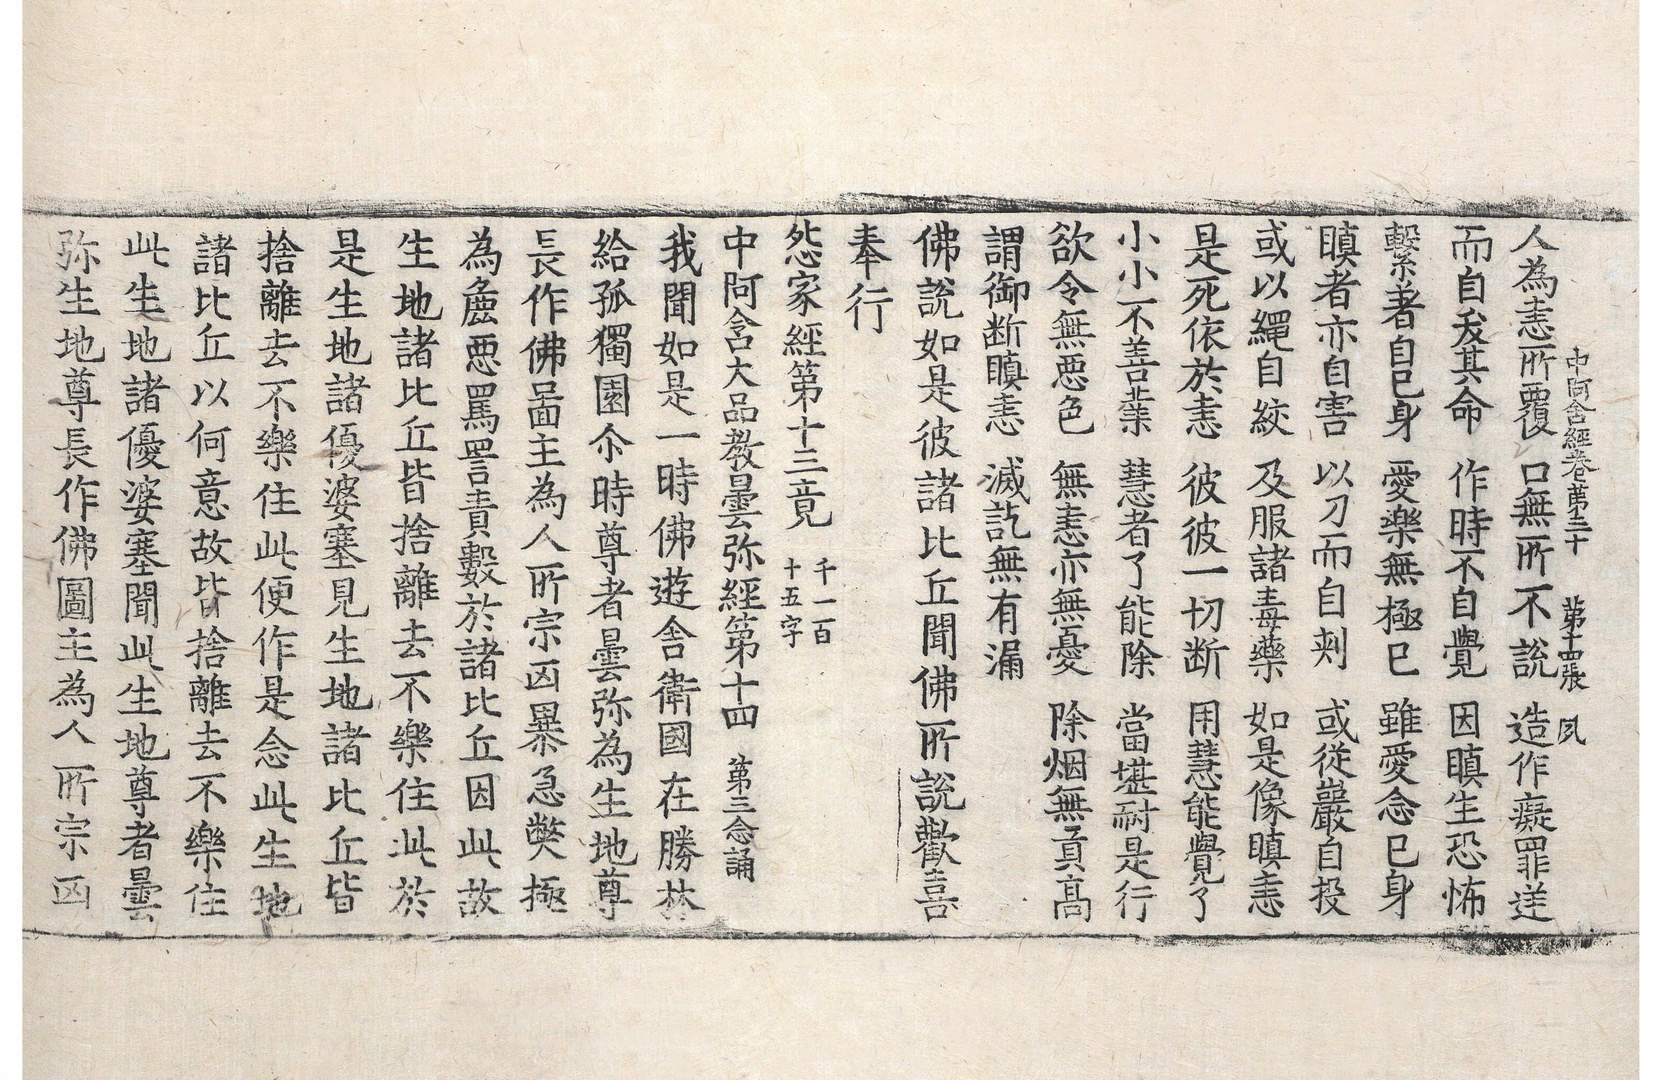 中阿含經卷第三十 第十四張 夙
人為恚所覆 口無所不說 造作癡罪逆
而自害其命 作時不自覺 因瞋生恐怖
繫著自己身 愛樂無極已 雖愛念己身
瞋者亦自害 以刀而自刺 或從巖自投
或以繩自絞 及服諸毒藥 如是像瞋恚
是死依於恚 彼彼一切斷 用慧能覺了
小小不善業 慧者了能除 當堪耐是行
欲令無惡色 無恚亦無憂 除烟無貢高
調御斷瞋恚 滅訖無有漏
佛說如是彼諸比丘聞佛所說歡喜
奉行
怨家經第十三竟 千一百十五字
中阿含大品教曇弥經第十四 第三念誦
我聞如是一時佛遊舍衛國在勝林
給孤獨園尒時尊者曇弥為生地尊
長作佛啚主為人所宗凶暴急獘極
為麁惡罵詈責數於諸比丘因此故
生地諸比丘皆捨離去不樂住此於
是生地諸優婆塞見生地諸比丘皆
捨離去不樂住此便作是念此生地
諸比丘以何意故皆捨離去不樂住
此生地諸優婆塞聞此生地尊者曇
弥生地尊長作佛圖主為人所宗凶